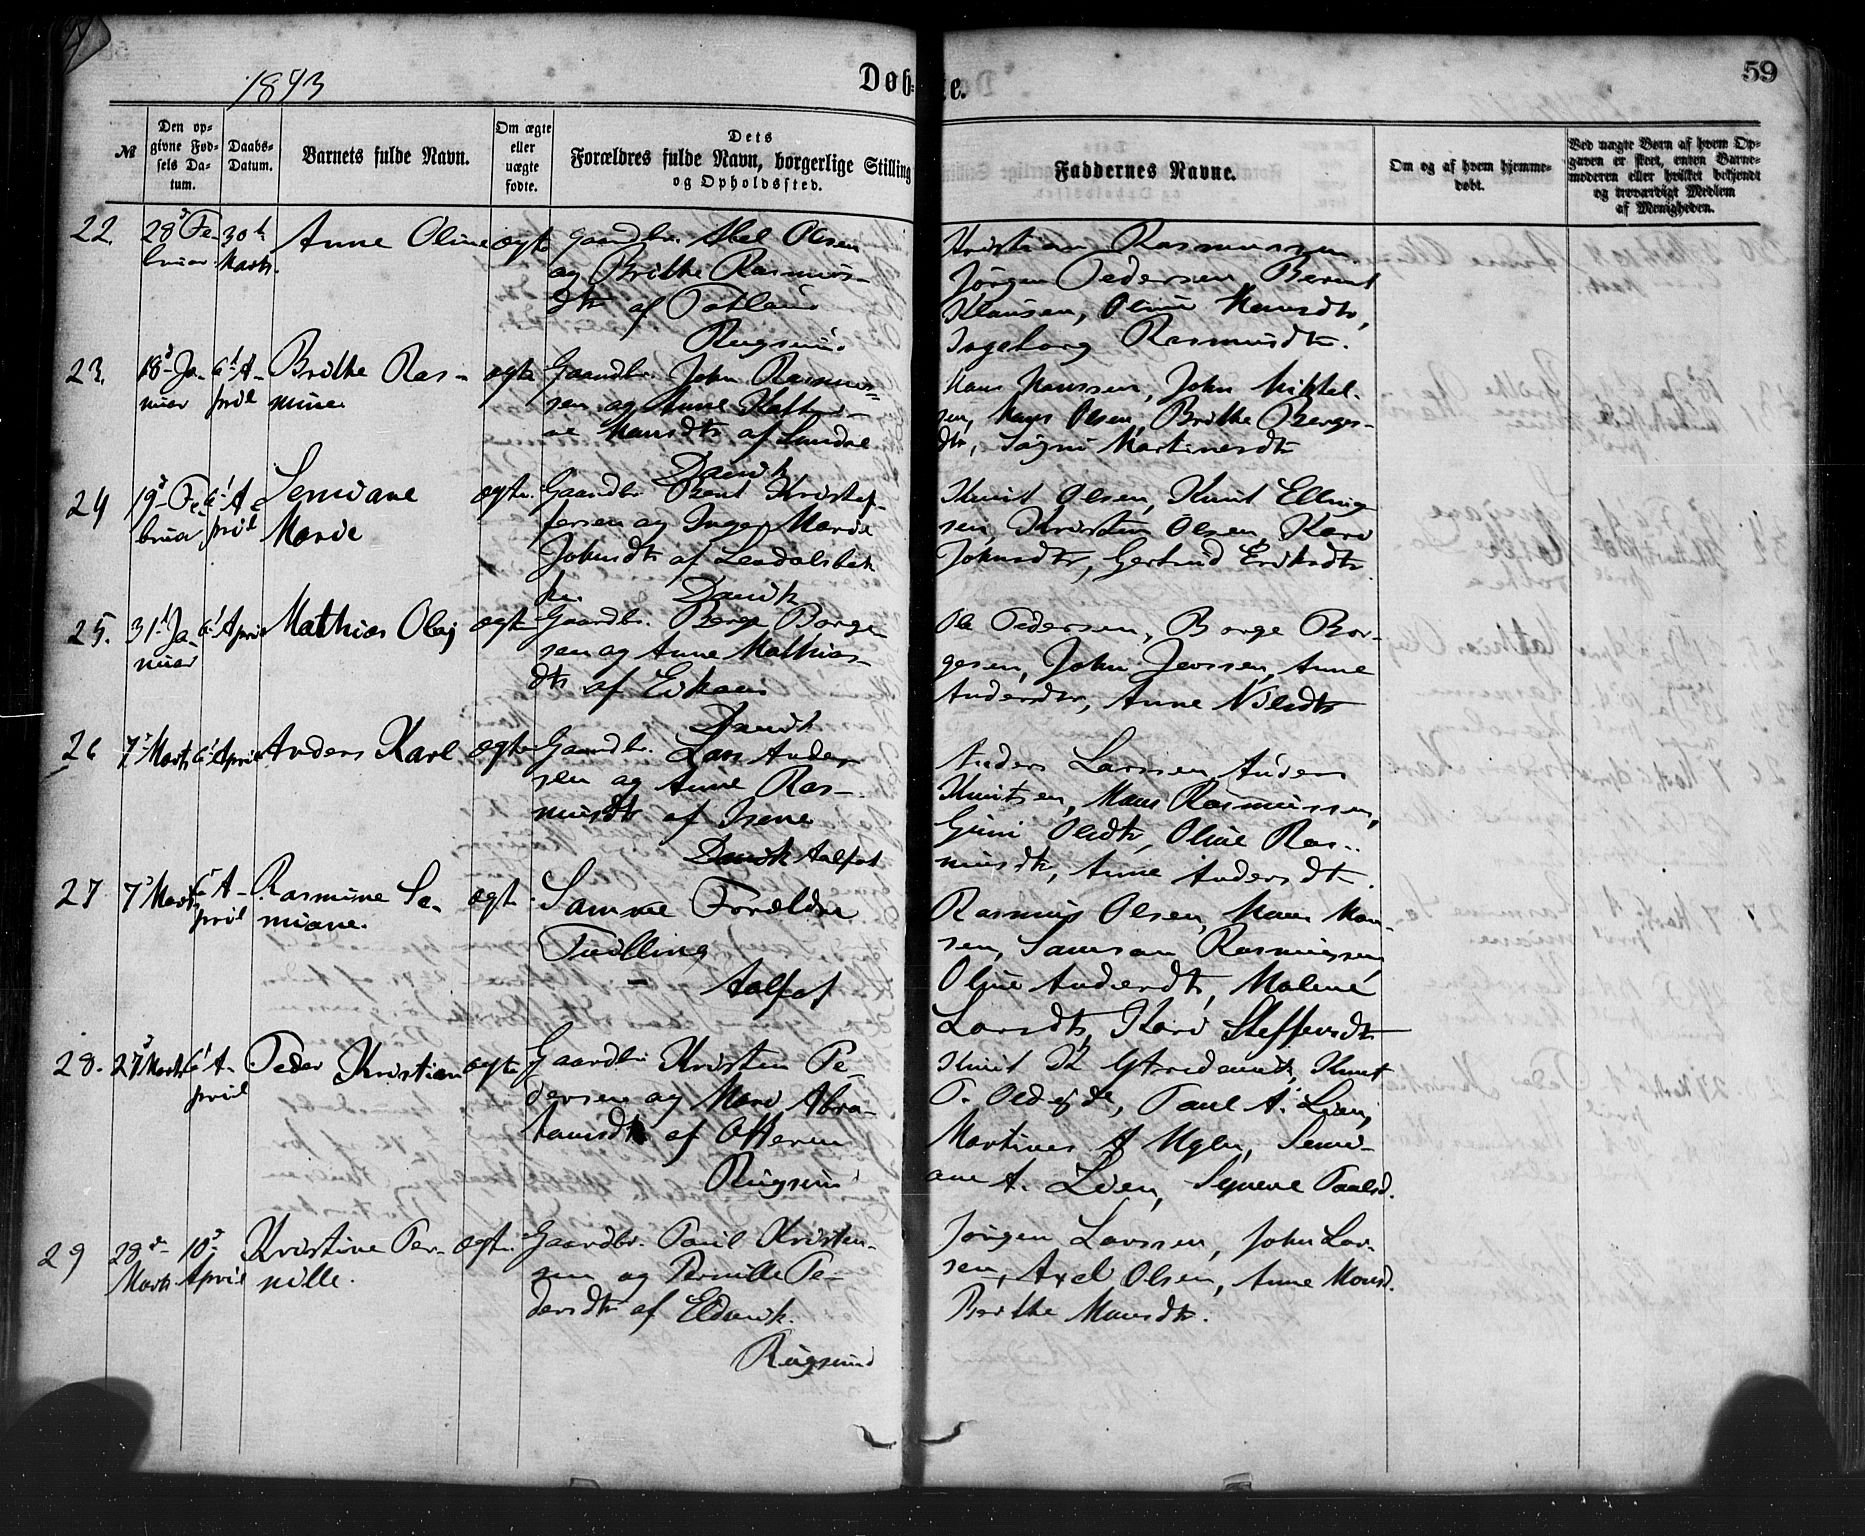 1873
Døb-
te.
59
№
Den op-
givne Fød-
sels Da-
tum.
Daabs-
Datum.
Barnets fulde Navn.
Om ægte
eller
uægte
fødte.
Dets
Forældres fulde Navn, borgerlige Stilling
og Opholdssted.
Faddernes Navne.
Om og af hvem hjemme-
døbt.
Ved uægte Børn af hvem Op-
gaven er skeet, enten Barne-
moderen eller hvilket bekjendt
og troværdigt Medlem
af Menigheden.
22.
28 Fe-
bruar.
30te
Marts.
Anne Oline
ægte
Gaardbr. Abel Olsen
og Brithe Rasmus-
dtr af Totland
Rugsund
Kristian Rasmussen.
Jørgen Pedersen, Bernt
Klausen, Oline Hansdtr,
Ingeborg Rasmusdtr.
23.
18 Ja-
nuar
6 A-
pril
Brithe Ras-
mine
ægte
Gaardbr. John Rasmus-
sen og Anne Kathri-
ne Hansdtr af
Davik
Hans Hanssen, John Mikkel-
sen, Hans Olsen, Brithe Berges-
dtr, Martinesdtr
24
19 Fe-
bruar
6 A-
pril
Marie
ægte
Gaardbr. Bent Kristof-
fersen og Inger Marie
Johnsdtr af
Davik
Knut Olsen, Knut Elling-
sen, Kristian Olsen, Kari
Johnsdtr, Gertrud Eriksdtr
25.
31 Ja-
nuar
6 April
Mathias Olaj
ægte
Gaardbr. Børge Børge-
sen og Anne Mathias-
dtr af
Davik
Ole Pedersen, Børge Bør-
gesen, John Jenssen, Anne
Andersdtr, Anne Nilsdtr
26
7 Marts
6 April
Anders Karl
ægte
Gaardbr. Lars Ander-
sen og Anne Ras-
musdtr af Isene
Davik Aalfot
Anders Larssen, Anders
Knutsen, Hans Rasmussen,
Guni Olsdtr, Oline Ras-
musdtr, Anne Andersdtr.
27
7 Marts
6 A-
pril
Rasmine Se-
miane.
ægte
Samme Forældre
Tvilling
Aalfot
Rasmus Olsen, Hans Han-
sen, Samson Rasmussen,
Oline Andersdtr, Malene
Larsdtr, Kari Steffensdtr
28.
27 Marts
6 A-
pril
Peder Kristian
ægte
Gaardbr. Kristen Pe-
dersen og Mari Abra-
hamsdtr af Otteren
Rugsund
Knut
Knut
Paul A. Lien,
Martines A
Semi-
ane A. Lien, Synneve Paulsd.
29
28de
Marts.
10
April
Kristine Per-
nille.
ægte
Gaardbr. Paul Kristen-
sen og Pernille Pe-
dersdtr af Eldevik.
Rugsund
Jørgen Larssen, John Lar-
sen, Axel Olsen, Anne Monsd.
Brithe Monsdtr.